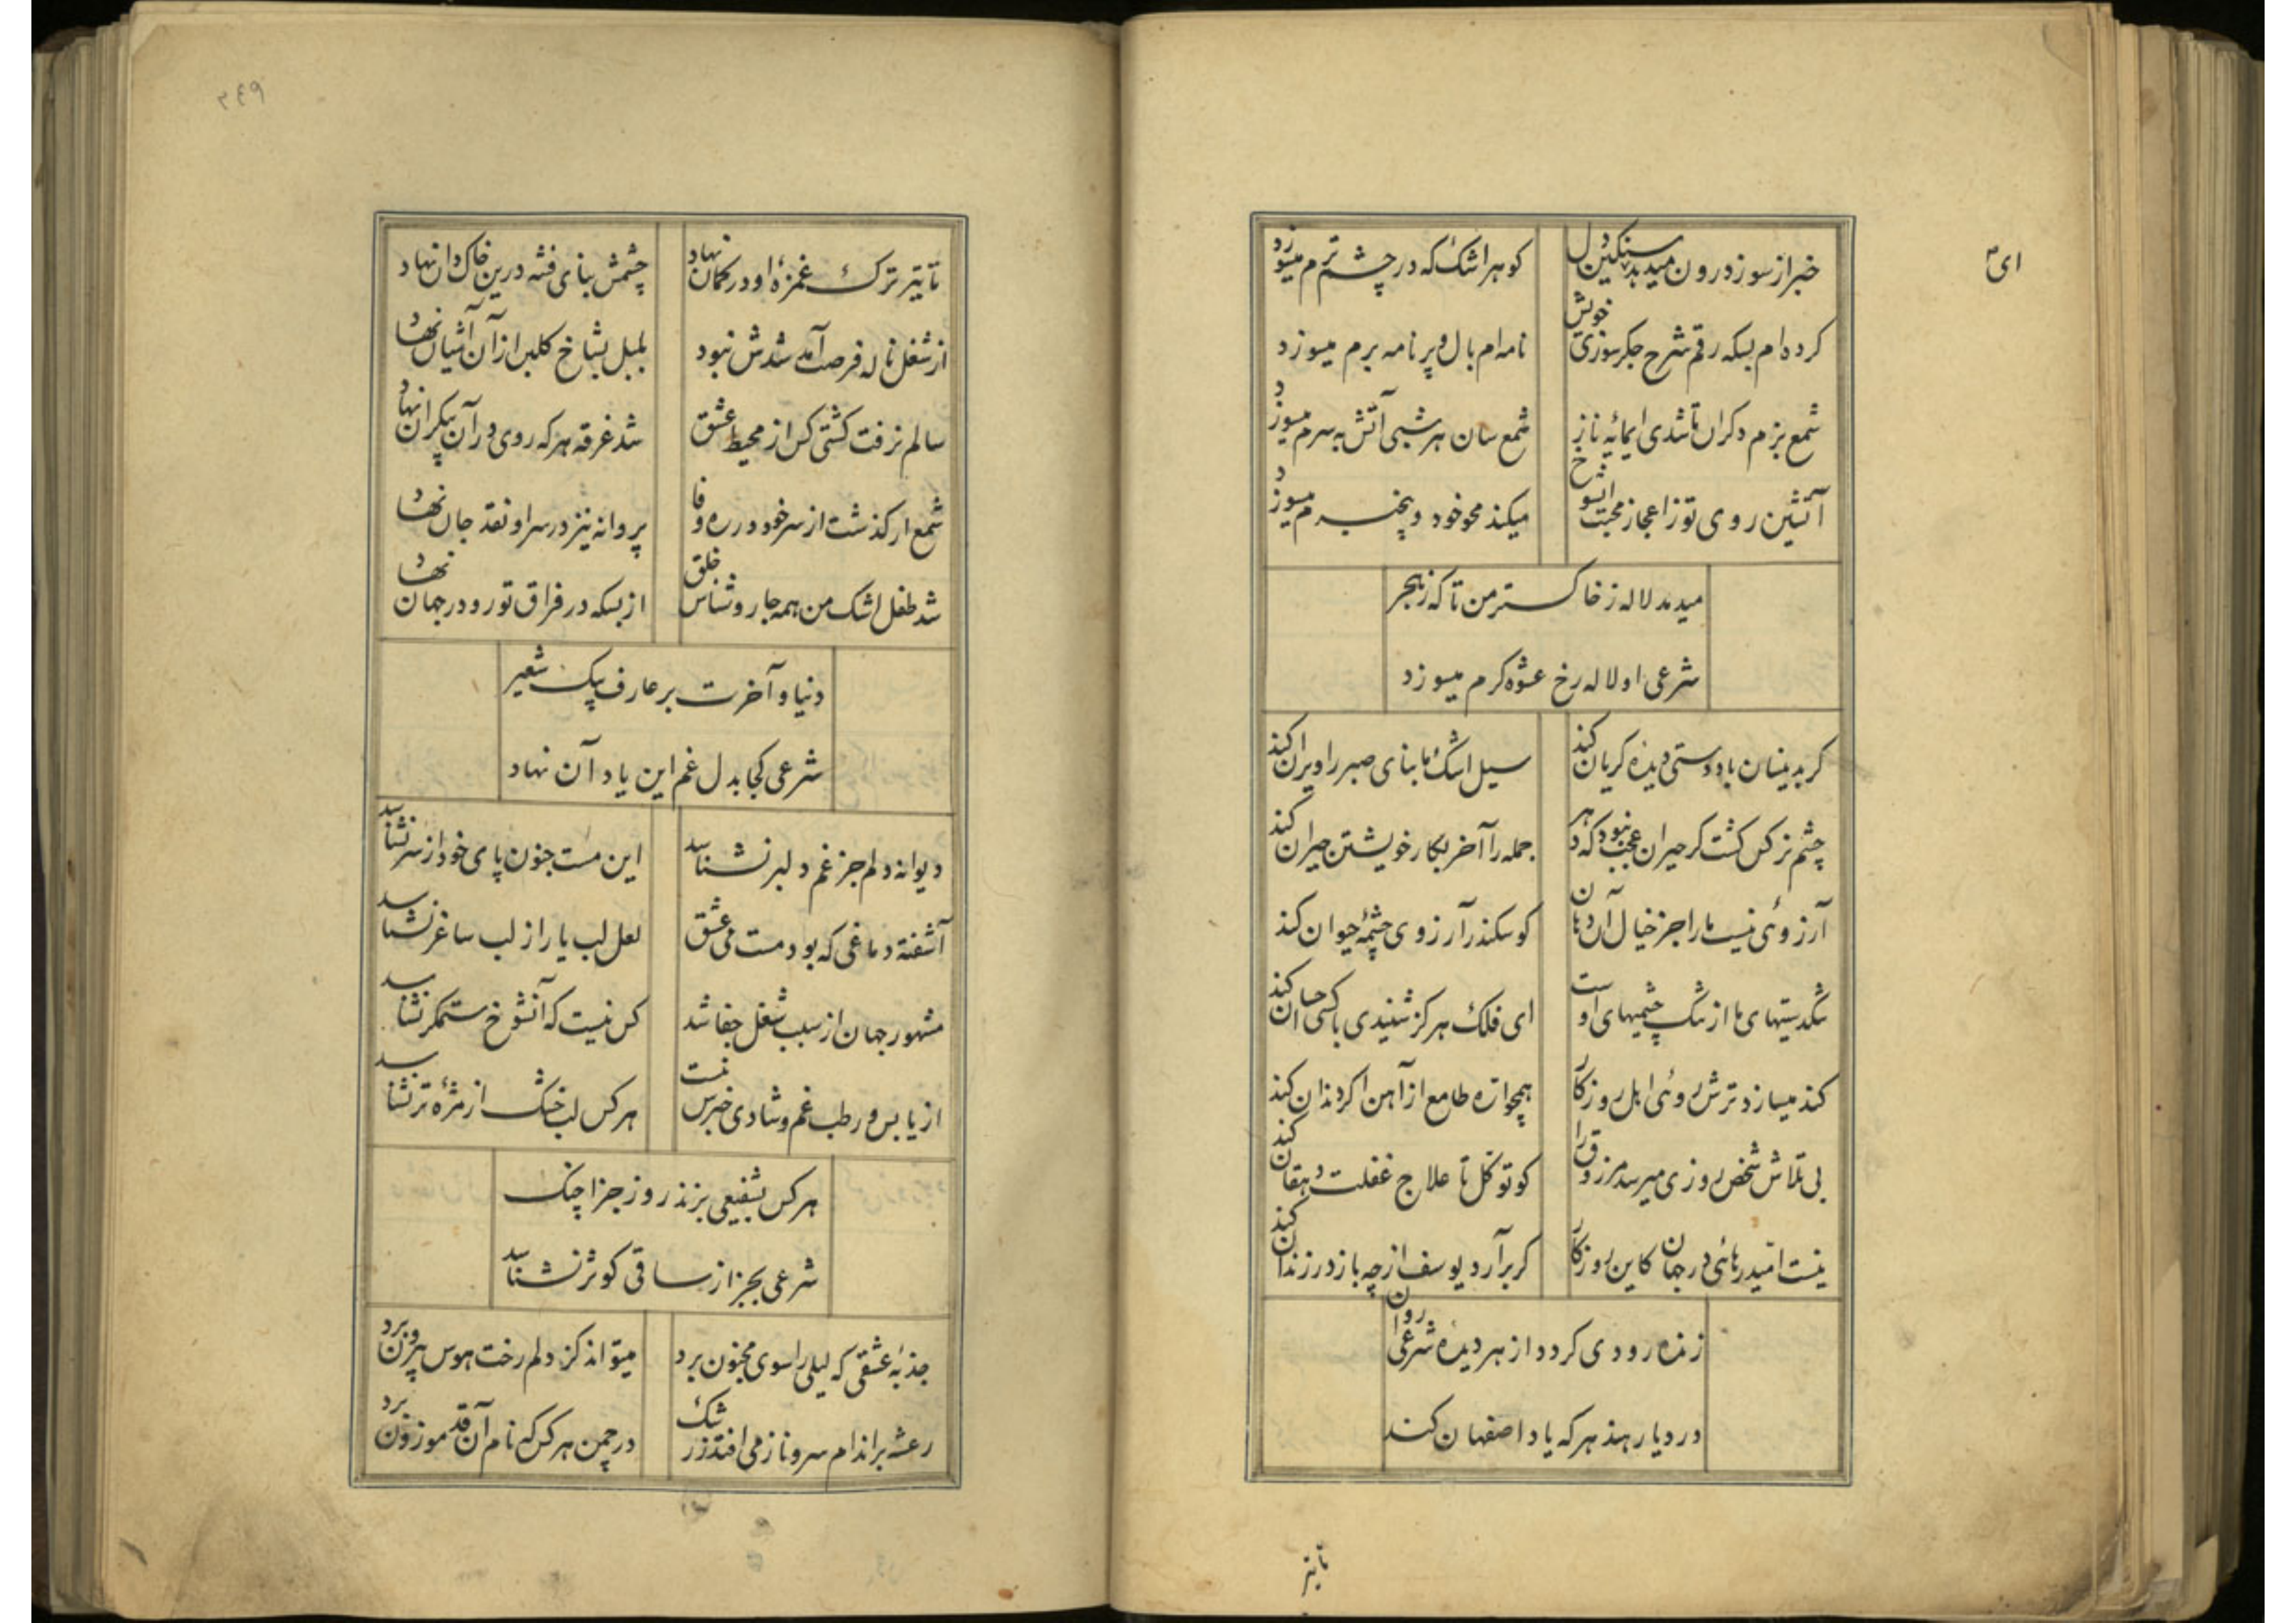 ای
خبر از سوز درون میدهد سنکین دل
کوهر اشک که در چشم ترم میسوزد
کرده ام بسکه رقم شرح جکر سوزی خویش
نامه ام بال و پر نامه برم میسوزد
شمع بزم دکران تا شدی ایمائه ناز
شمع سان هر شبی آتش به سرم میسوزد
آتشین روی تو ز اعجاز محبت
میکند محو خود و بیخبرم میسوزد
میدمد لاله ز خاکستر من تا که ز هجر
شرعی او لاله رخ عشوه کرم میسوزد
کر بدینسان یاد دوستی دیده کریان کند
سیل اشک ما بنای صبر را ویران کند
چشم نرکس کشت کر حیران عجب نبود که هر
جمله را آخر بکار خویشتن حیران کند
آرزوئی نیست ما را جز خیال آن دهان
کو سکندر آرزوی چشمهٔ حیوان کند
تنکدستیهای ما از تنک چشمیهای اوست
ای فلک هرکز شنیدی با کسی احسان کند
کند میسازد ترش روئی اهل روزکار
همچو اره طامع از آهن اکر دندان کند
بی تلاش شخص روزی میرسد مرزوق را
کو توکل تا علاج غفلت دهقان کند
نیست امید رهائی در جهان کاین روزکار
کر برآرد یوسف از چه باز در زندان کند
زنده رودی کردد از هر دیده شرعی روان
در دیار هند هر که یاد اصفهان کند
تا تیر
۳۴۹
تا تیر ترک غمزهٔ او در کمان نهاد
چشمش بنای فتنه درین خاکدان نهاد
از شغل ناله فرصت آمد شدش نبود
بلبل بشاخ کلبن از آن آشیان نهاد
سالم نرفت کشتی کس از محیط عشق
شد غرقه هر که روی در آن بیکران نهاد
شمع ار کذشت از سر خود در ره وفا
پروانه نیز در سر او نقد جان نهاد
شد طفل اشک من همه جا روشناس خلق
از بسکه در فراق تو رو در جهان نهاد
دنیا و آخرت بر عارف بیک شعیر
شرعی کجا بدل غم این یاد آن نهاد
دیوانه دلم جز غم دلبر نشناسد
این مست جنون پای خود از سر نشناسد
آشفته دماغی که بود مست می عشق
لعل لب یار از لب ساغر نشناسد
مشهور جهان از سبب شغل جفا شد
کس نیست که آنشوخ ستمکر نشناسد
از یابس و رطب غم و شادی خبرش نیست
هر کس لب خشک از مژه تر نشناسد
هر کس بشفیعی بزند روز جزا چنک
شرعی بجز از ساقی کوثر نشناسد
جذبهٔ عشقی که لیلی را سوی مجنون برد
میتواند کز دلم رخت هوس بیرون برد
رعشه بر اندام سرو ناز می افتد ز رشک
در چمن هر کس که نام آن قد موزون برد